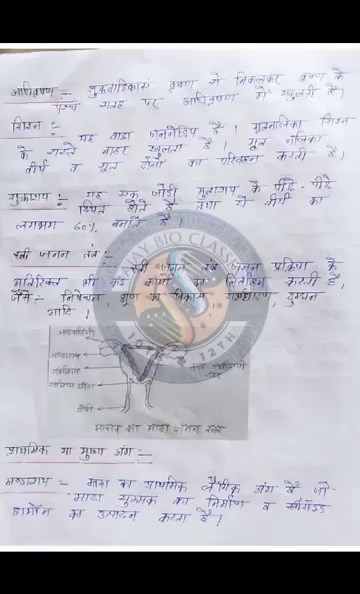 अधिवृषण :- शुक्रवाहिकाएं वृषण से निकलकर वृषण के
पश्च सतह पर अधिवृषण में खुलती है।
शिश्न :-
यह बाह्य जननेंद्रिय है। मूत्रनलिका शिश्न
के रास्ते बाहर खुलती है। मूत्र नलिका
वीर्य व मूत्र दोनों का परिवहन करती है।
शुक्राशय :- यह एक जोड़ी मूत्राशय के पीछे-पीछे
स्थित होते हैं तथा ये वीर्य का
लगभग 60% बनाते हैं
स्त्री जनन तंत्र :-
स्त्री जनन तंत्र जनन प्रक्रिया के
अतिरिक्त भी कई कार्यों का करती है,
जैसे :- निषेचन, भ्रूण का विकास, दुग्धपान
आदि।
AJAY BIO CLASSES
12TH
अण्डाशय
गर्भाशय
योनि
मानव का मादा जनन तंत्र
प्राथमिक या मुख्य अंग :-
अण्डाशय - मादा का प्राथमिक लैंगिक अंग है जो
मादा युग्मक का निर्माण व स्टीरॉइड
हार्मोन का उत्पादन करता है।